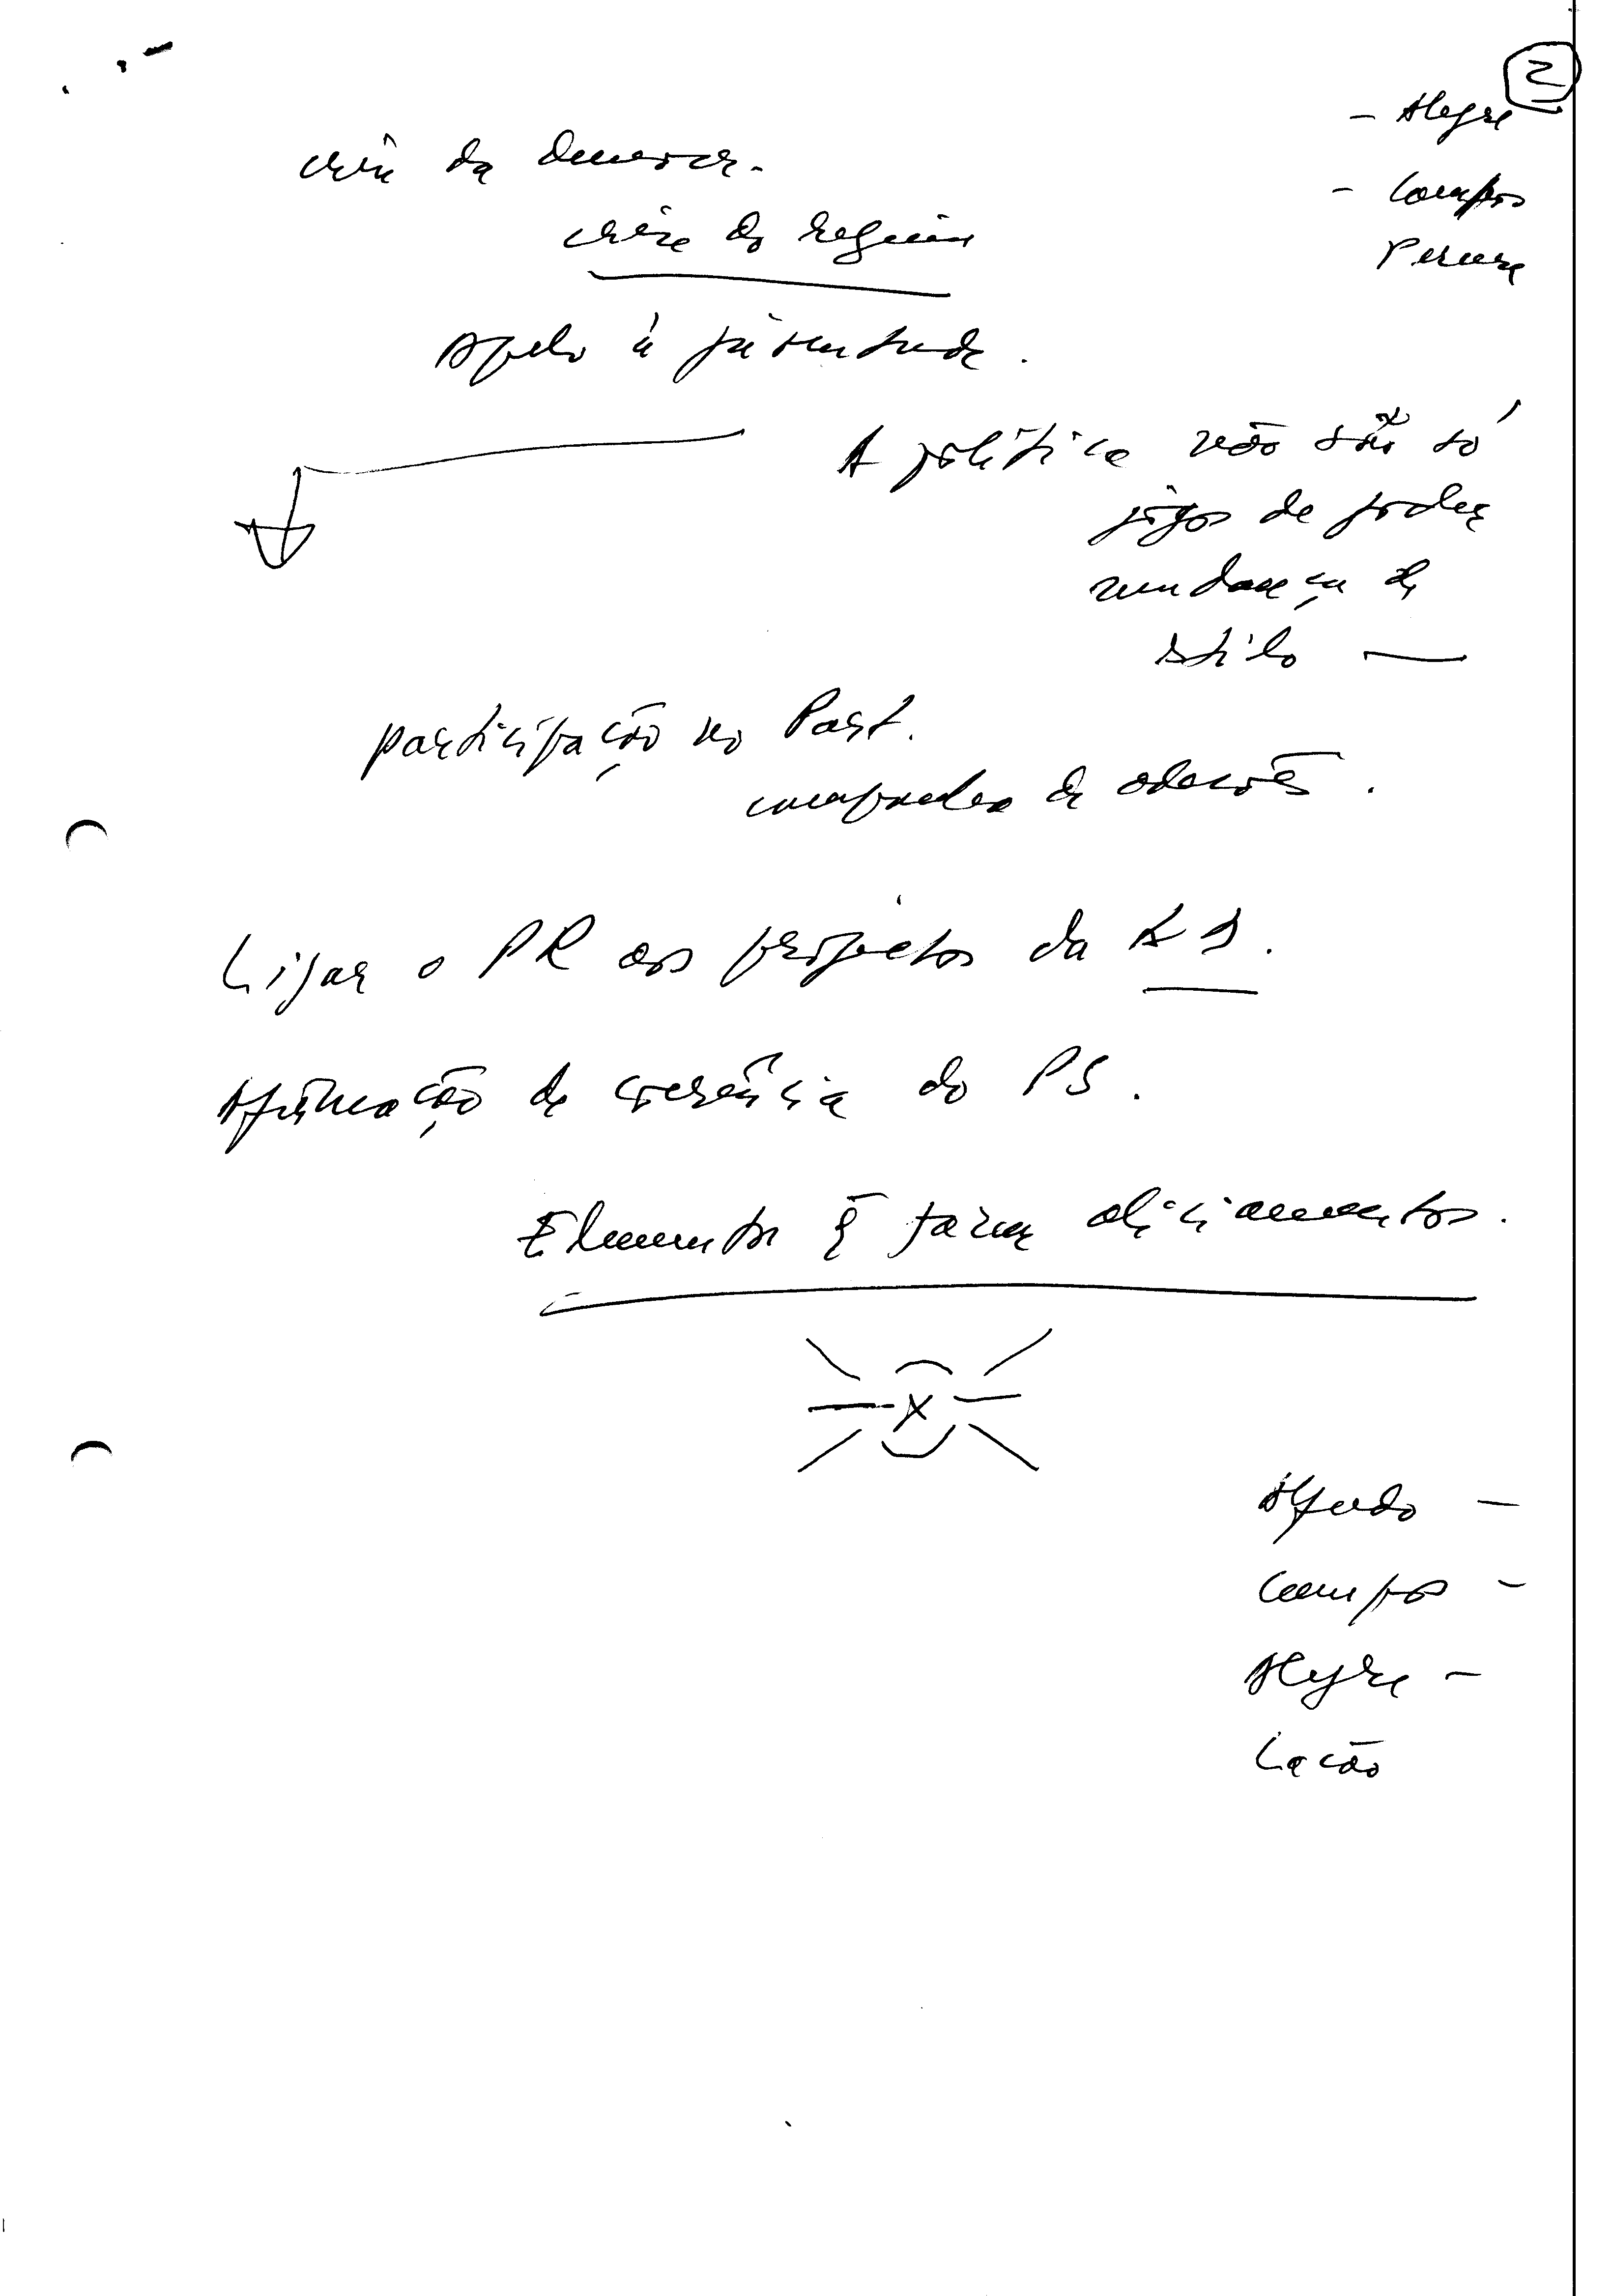 2
- Alegre
- Campos
crise da democr.
crise do regime
Apelo à juventude.
A política não são só
jogos de poder
mudança de
estilo —
participação no Part.
campanha de adesões.
Ligar o PR aos projectos da
Afirmação de coerência do PS.
Elementos q̄ fazem aliciamentos.
X
Alfredo -
Campos -
Alegre -
Lacão